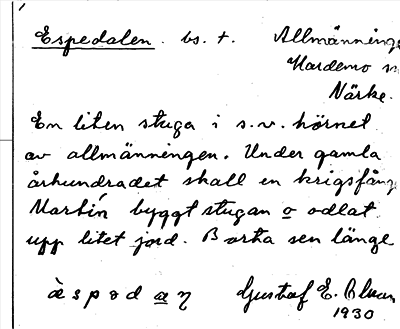 Espedalen. bs. t. Allmänninge
Hardemo s
Närke.
En liten stuga i s.v. hörnet
av allmänningen. Under gamla
århundradet skall en krigsfång
Martin byggt stugan o odlat
upp litet jord. Borta sen länge
Gustaf E.
1930